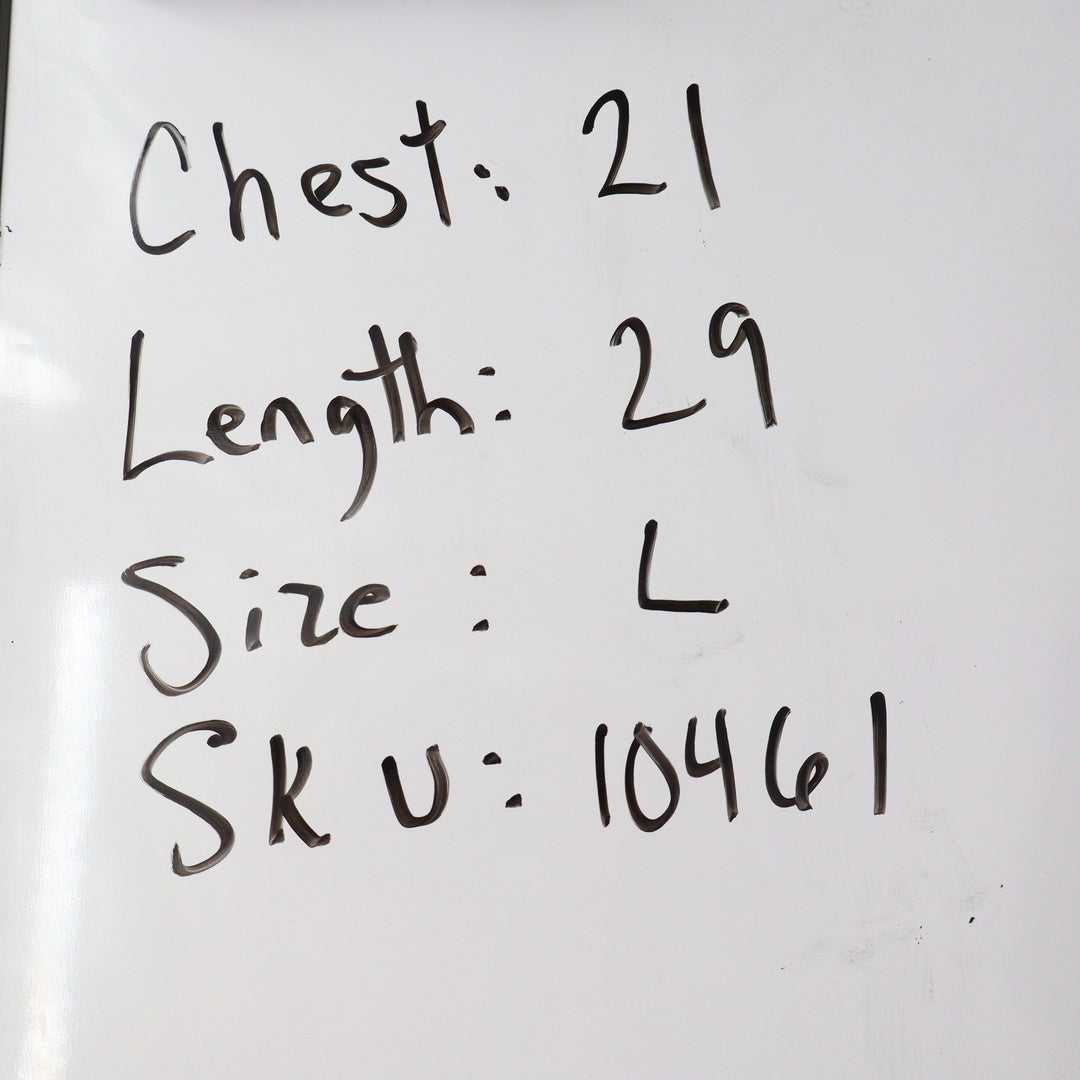 Chest: 21
Length: 29
Size: L
SKU: 10461